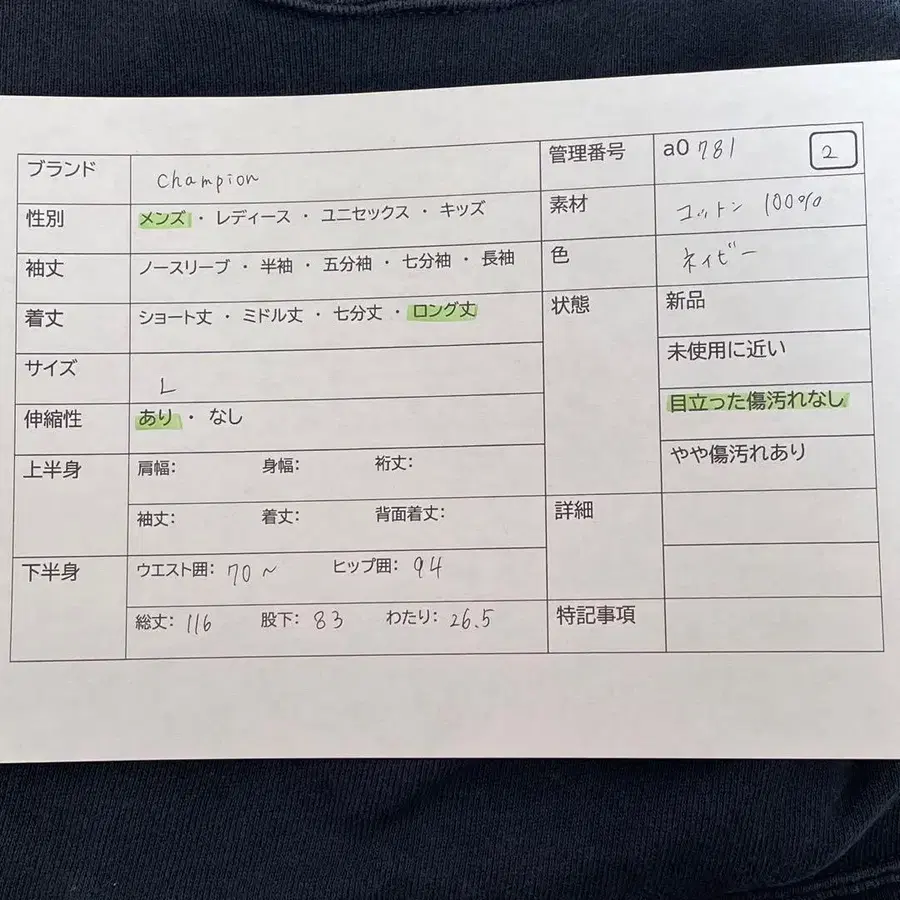 ブランド champion
性別 メンズ ・ レディース ・ ユニセックス ・ キッズ
袖丈 ノースリーブ ・ 半袖 ・ 五分袖 ・ 七分袖 ・ 長袖
着丈 ショート丈 ・ ミドル丈 ・ 七分丈 ・ ロング丈
サイズ L
伸縮性 あり ・ なし
上半身 肩幅: 身幅: 裄丈:
袖丈: 着丈: 背面着丈:
下半身 ウエスト囲: 70~ ヒップ囲: 94
総丈: 116 股下: 83 わたり: 26.5
管理番号 a0 781 2
素材 コットン 100%
色 ネイビー
状態 新品
未使用に近い
目立った傷汚れなし
やや傷汚れあり
詳細
特記事項